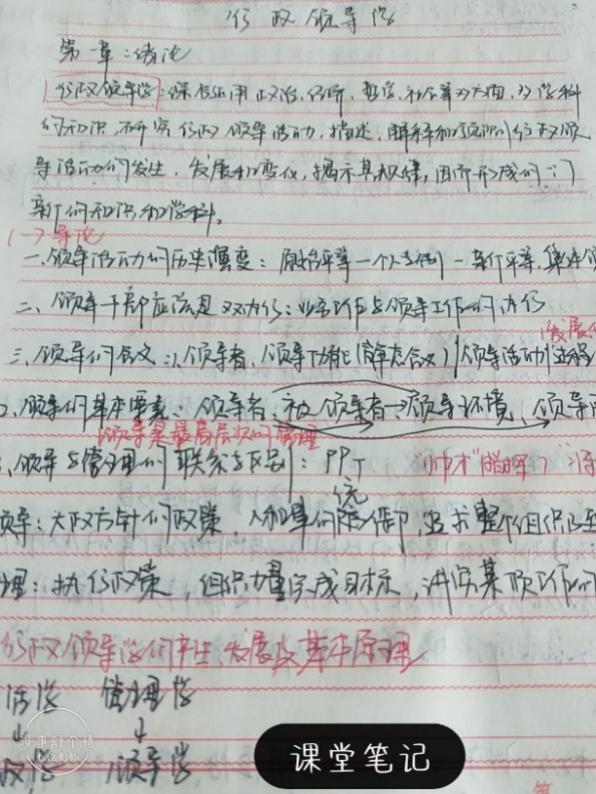 行政领导学
第一章:绪论
1.行政领导学:综合运用政治、经济、哲学、社会等多方面、多学科
的知识,研究行政领导活动,描述、解释和预测行政领
导活动的发生、发展和变化,揭示其规律,因而形成的一门
新的知识和学科。
(一)导论
一、领导活动的历史演变:原始平等一个人专制一新平等,集体领
二、领导干部应该是双内行:业务工作与领导工作的内行
(发展
三、领导的含义:领导者,领导才能(静态含义)领导活动过程
领导的基本要素:领导者,被领导者→领导环境,领导
领导是最高层次的管理
领导与管理的联系与区别:PPT "帅才"指挥
领导:大政方针的政策,人和事的统御,追求整个组织
理:执行政策,组织力量完成目标,讲究某项工作的
行政领导学的产生、发展及基本原理
管理学
↓ ↓
领导学
课堂笔记